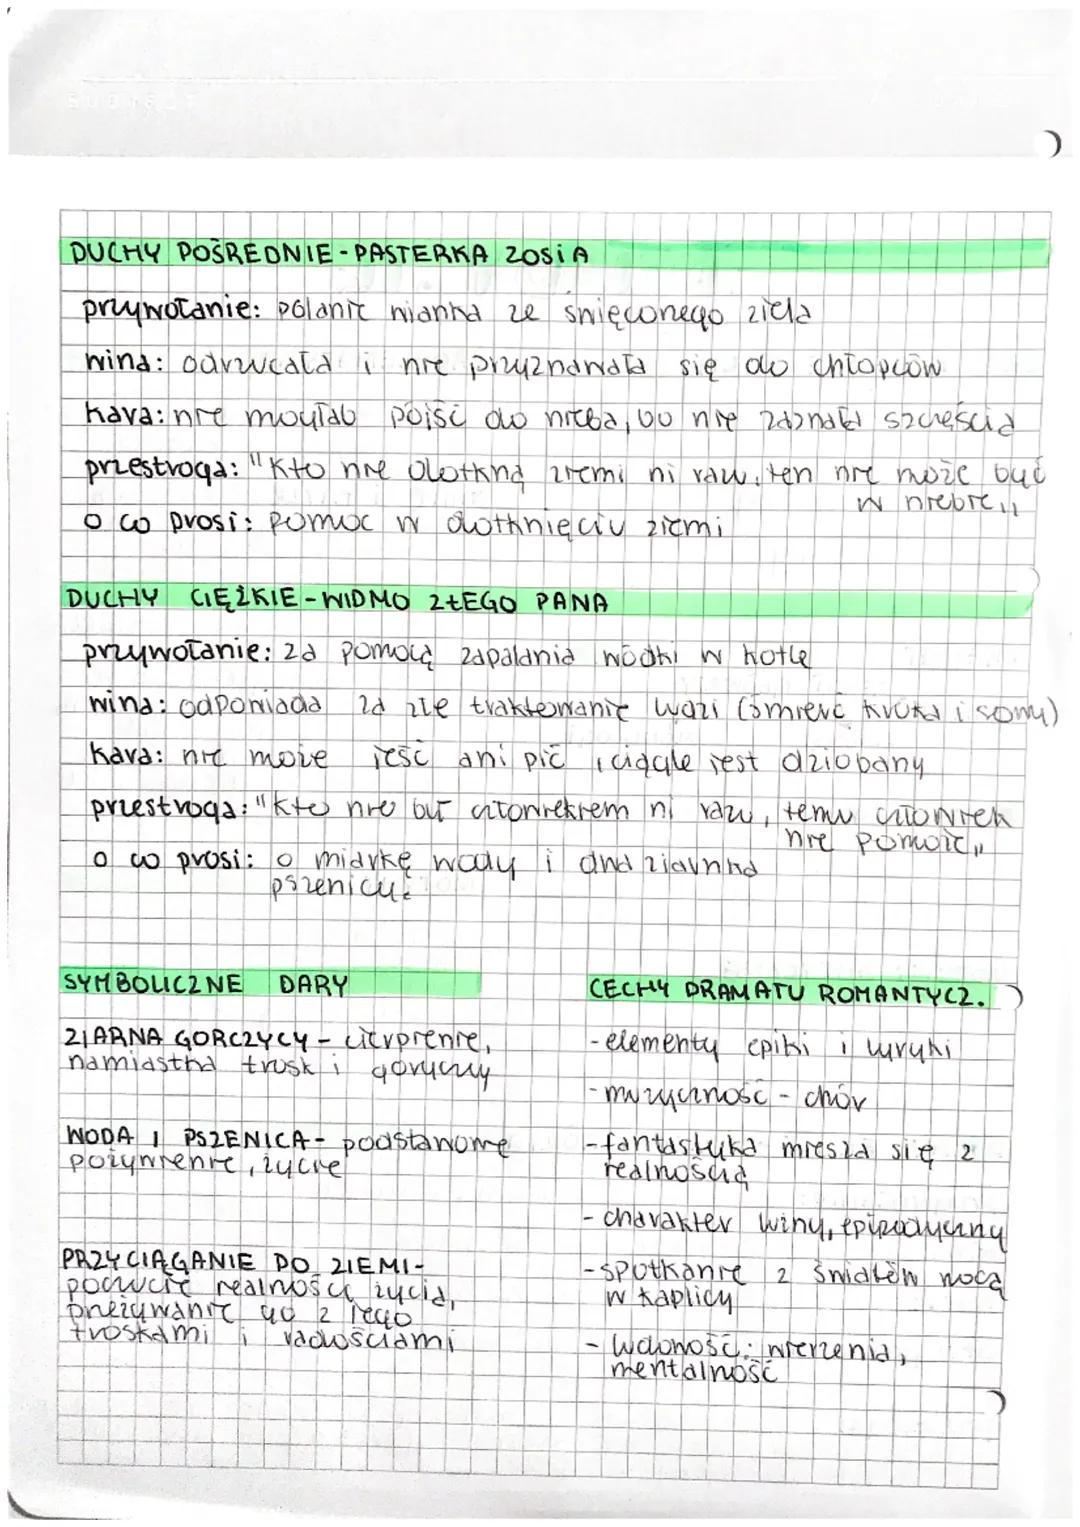 DUCHY POŚREDNIE - PASTERKA ZOSIA
przywołanie: palanie wianka ze święconego ziela
wina: odrzucała i nie przyznawała się do chłopców
kara: nie mogłab pójść do nieba, bo nie zaznała szczęścia
przestroga: "Kto nie dotknął ziemi ni razu, ten nie może być
w niebie,,
o co prosi: pomoc w dotknięciu ziemi
DUCHY CIĘŻKIE - WIDMO ZŁEGO PANA
przywołanie: za pomocą zapalania wódki w kotle
wina: odpowiada za złe traktowanie ludzi (śmierć kruka i sowy)
kara: nie może jeść ani pić, ciągle jest dziobany
przestroga: "Kto nie był człowiekiem ni razu, temu człowiek
nie pomoże,,
o co prosi: o miarkę wody i dwa ziarnka
pszenicy.
SYMBOLICZNE DARY
ZIARNA GORCZYCY - cierpienie,
namiastka trosk i goryczy
WODA I PSZENICA - podstawowe
pożywienie, życie
PRZYCIĄGANIE DO ZIEMI -
poczucie realności życia,
przeżywanie go z jego
troskami i radościami
CECHY DRAMATU ROMANTYCZ.
- elementy epiki i liryki
- muzyczność - chór
- fantastyka miesza się z
realnością
- charakter winy, epizodyczny
- spotkanie z światem nocą
w kaplicy
- ludowość: wierzenia,
mentalność